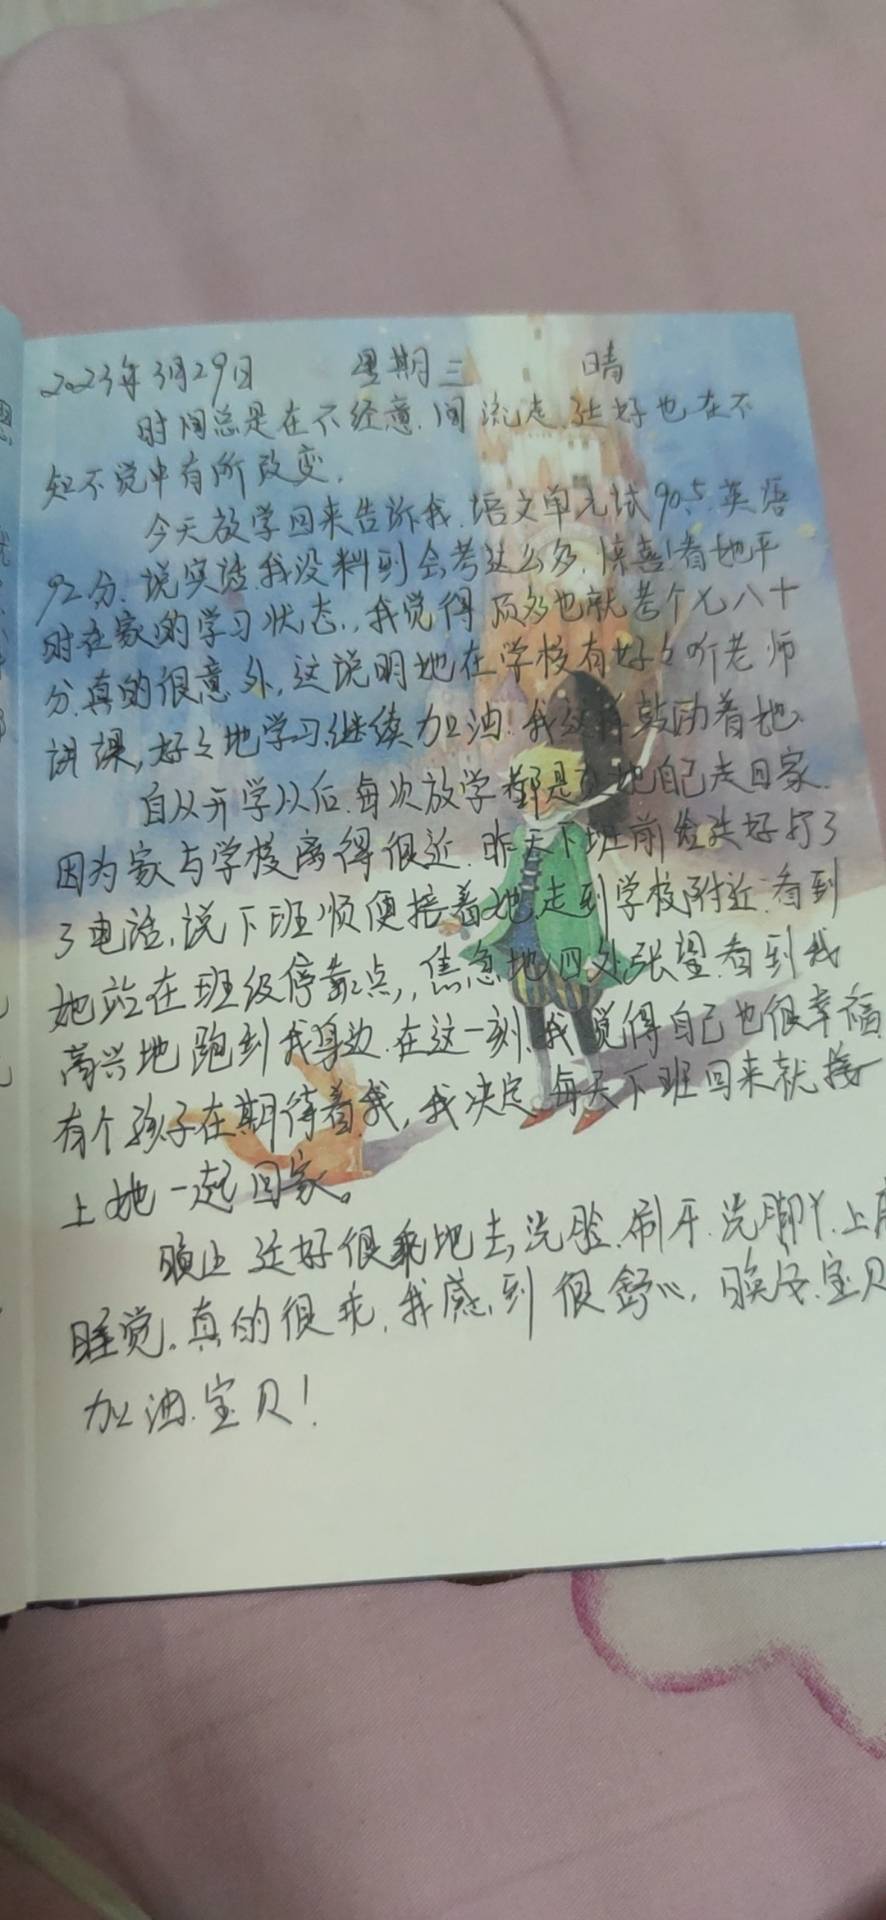 2023年3月29日 星期三 晴
时间总是在不经意间流走.好也在不
知不觉中有所改变.
今天放学回来告诉我.语文单元试90.5.英语
92分.说实话.我没料到会考这么多.惊喜!看她平
时在家的学习状态.我觉得顶多也就考个七八十
分.真的很意外,这说明她在学校有好好听老师
讲课,好好地学习.继续加油.我这样鼓励着她.
自从开学以后.每次放学都是她自己走回家.
因为家与学校离得很近.昨天下班前给好打了
了电话,说下班顺便接着她.走到学校附近.看到
她站在班级停靠点,焦急地四处张望.看到我
高兴地跑到我身边.在这一刻.我觉得自己也很幸福
有个孩子在期待着我,我决定.每天下班回来就接
上她一起回家。
晚上好很乖地去洗脸.刷牙.洗脚丫.上
睡觉。真的很乖,我感到很舒心.晚安.宝贝
加油.宝贝!